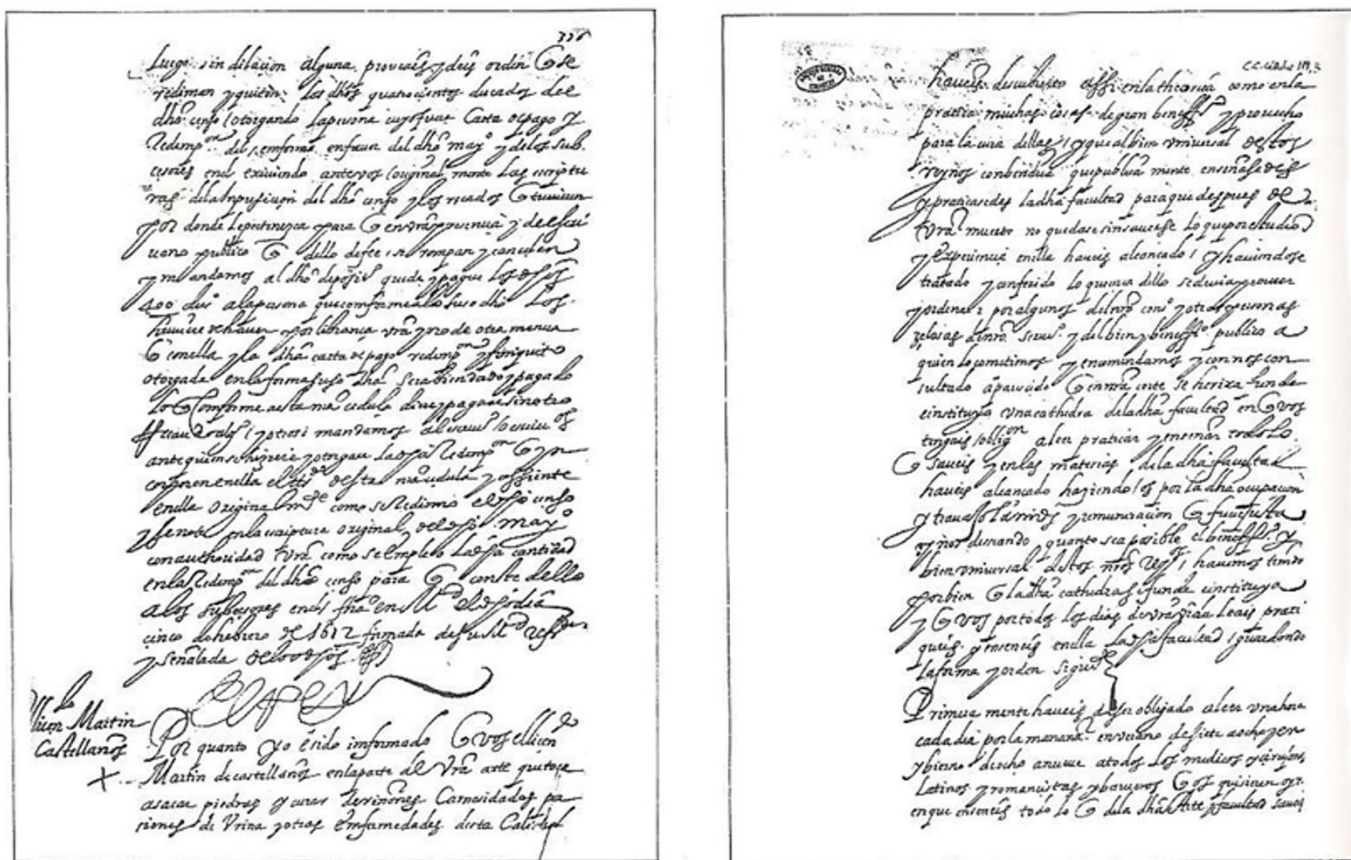 326
luego sin dilacion alguna proveais y deis orden q se
rediman y quiten los dhos quatrocientos ducados del
dho censo otorgando la persona cuyo fuere Carta de pago y
Redemp.on del en forma en favor del dho may.o y de los sub
cesores en el exiviendo ante vos original mente las scriptu
ras de la Inpusicion del dho censo y los recados q tuvieren
por donde le pertenezca para q en vra presencia y del scri
vano publico q dello diere fee se rompan y cancelen
y mandamos al dho deposit.o quede y pague los dhos
400 du.os a la persona que conforme a lo suso dho los
huviere de haver por librança vra y no de otra manera
q con ella y la dha carta de pago redemp.on y finiquito
otorgada en la forma suso dha sera bien dado y pagado
lo q conforme a esta mi cedula diere y pagare sin otro
recaudo alg.o y otrosi mandamos al scriv.o o scriv.os
ante quien se hiziere y otorgare la dha Redemp.on q yn
corporen en ella el tras.do desta mi cedula y assiente
en la Original m.te como se Redimio el dho censo
y se note en la escriptura original del dho may.o
con authoridad vra como se empleo la dha cantidad
en la Redemp.on del dho censo para q conste dello
a los subcesores en el fha en M.d a
cinco de hebrero de 1612 firmada de su M.d
y señalada de los dhos
El lic.do
Martin
Castellanos
Por quanto yo e sido imformado q vos el licen.do
Martin de castellanos en la parte de vra arte que toca
a sacar piedras y curar de riñones Carnosidades pa
siones de Vrina y otras emfermedades desta Calidad
haveis descubierto assi en la theorica como en la
pratica muchas cosas de gran benefi.o y provecho
para la cura dellas y que al bien vniversal destos
reynos conbendria que publica mente enseñasedes
y praticasedes la dha facultad para que despues de
vra muerte no quedase sin saverse lo que por estudio
y experiencia en ella haveis alcançado y haviendose
tratado y conferido lo que cerca dello se devia proveer
y ordenar por algunos del nro cons.o y otras personas
zelosas de nro serv.o y del bien y benefi.o publico a
quien lo cometimos y encomendamos y con nos con
sultado a parecido q en nra corte se herixa funde
e instituya vna cathedra de la dha facultad en q vos
tengais oblig.on a leer praticar y enseñar todo lo
q saveis y en las materias de la dha facultad
haveis alcançado haziendo os por la dha ocupacion
y travajo la mrd y remuneracion q fuere justa
y nos deseando quanto sea posible el benefi.o y
bien vniversal destos nros Rey.os havemos tenido
por bien q la dha cathedra se funde e instituya
y q vos por todos los dias de vra vida leais prati
queis y enseñeis en ella la dha facultad guardando
la forma y orden sigui.te
Primera mente haveis de ser obligado a leer vna hora
cada dia por la manana en verano de siete a ocho y en
ybierno de ocho a nueve a todos los medicos y cirujanos
latinos y romancistas y barveros q os quisieren oyr
en que enseñeis todo lo q de la dha Arte y facultad saveis